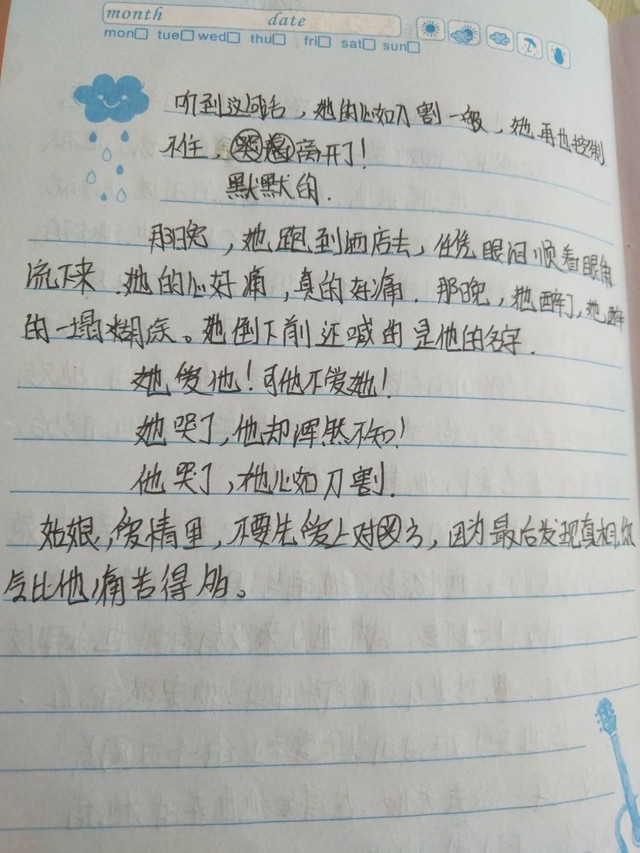 month date
mon tue wed thu fri sat sun
听到这句话，她的心如刀割一般，她再也控制
不住，离开了！
默默的．
那晚，她跑到酒店去，任凭眼泪顺着眼角
流下来．她的心好痛，真的好痛．那晚，她醉了，她醉
的一塌糊涂。她倒下前还喊的是他的名字．
她爱他！可他不爱她！
她哭了，他却浑然不知！
他哭了，她心如刀割．
姑娘，爱情里，不要先爱上对方，因为最后发现真相你
会比他痛苦得多。